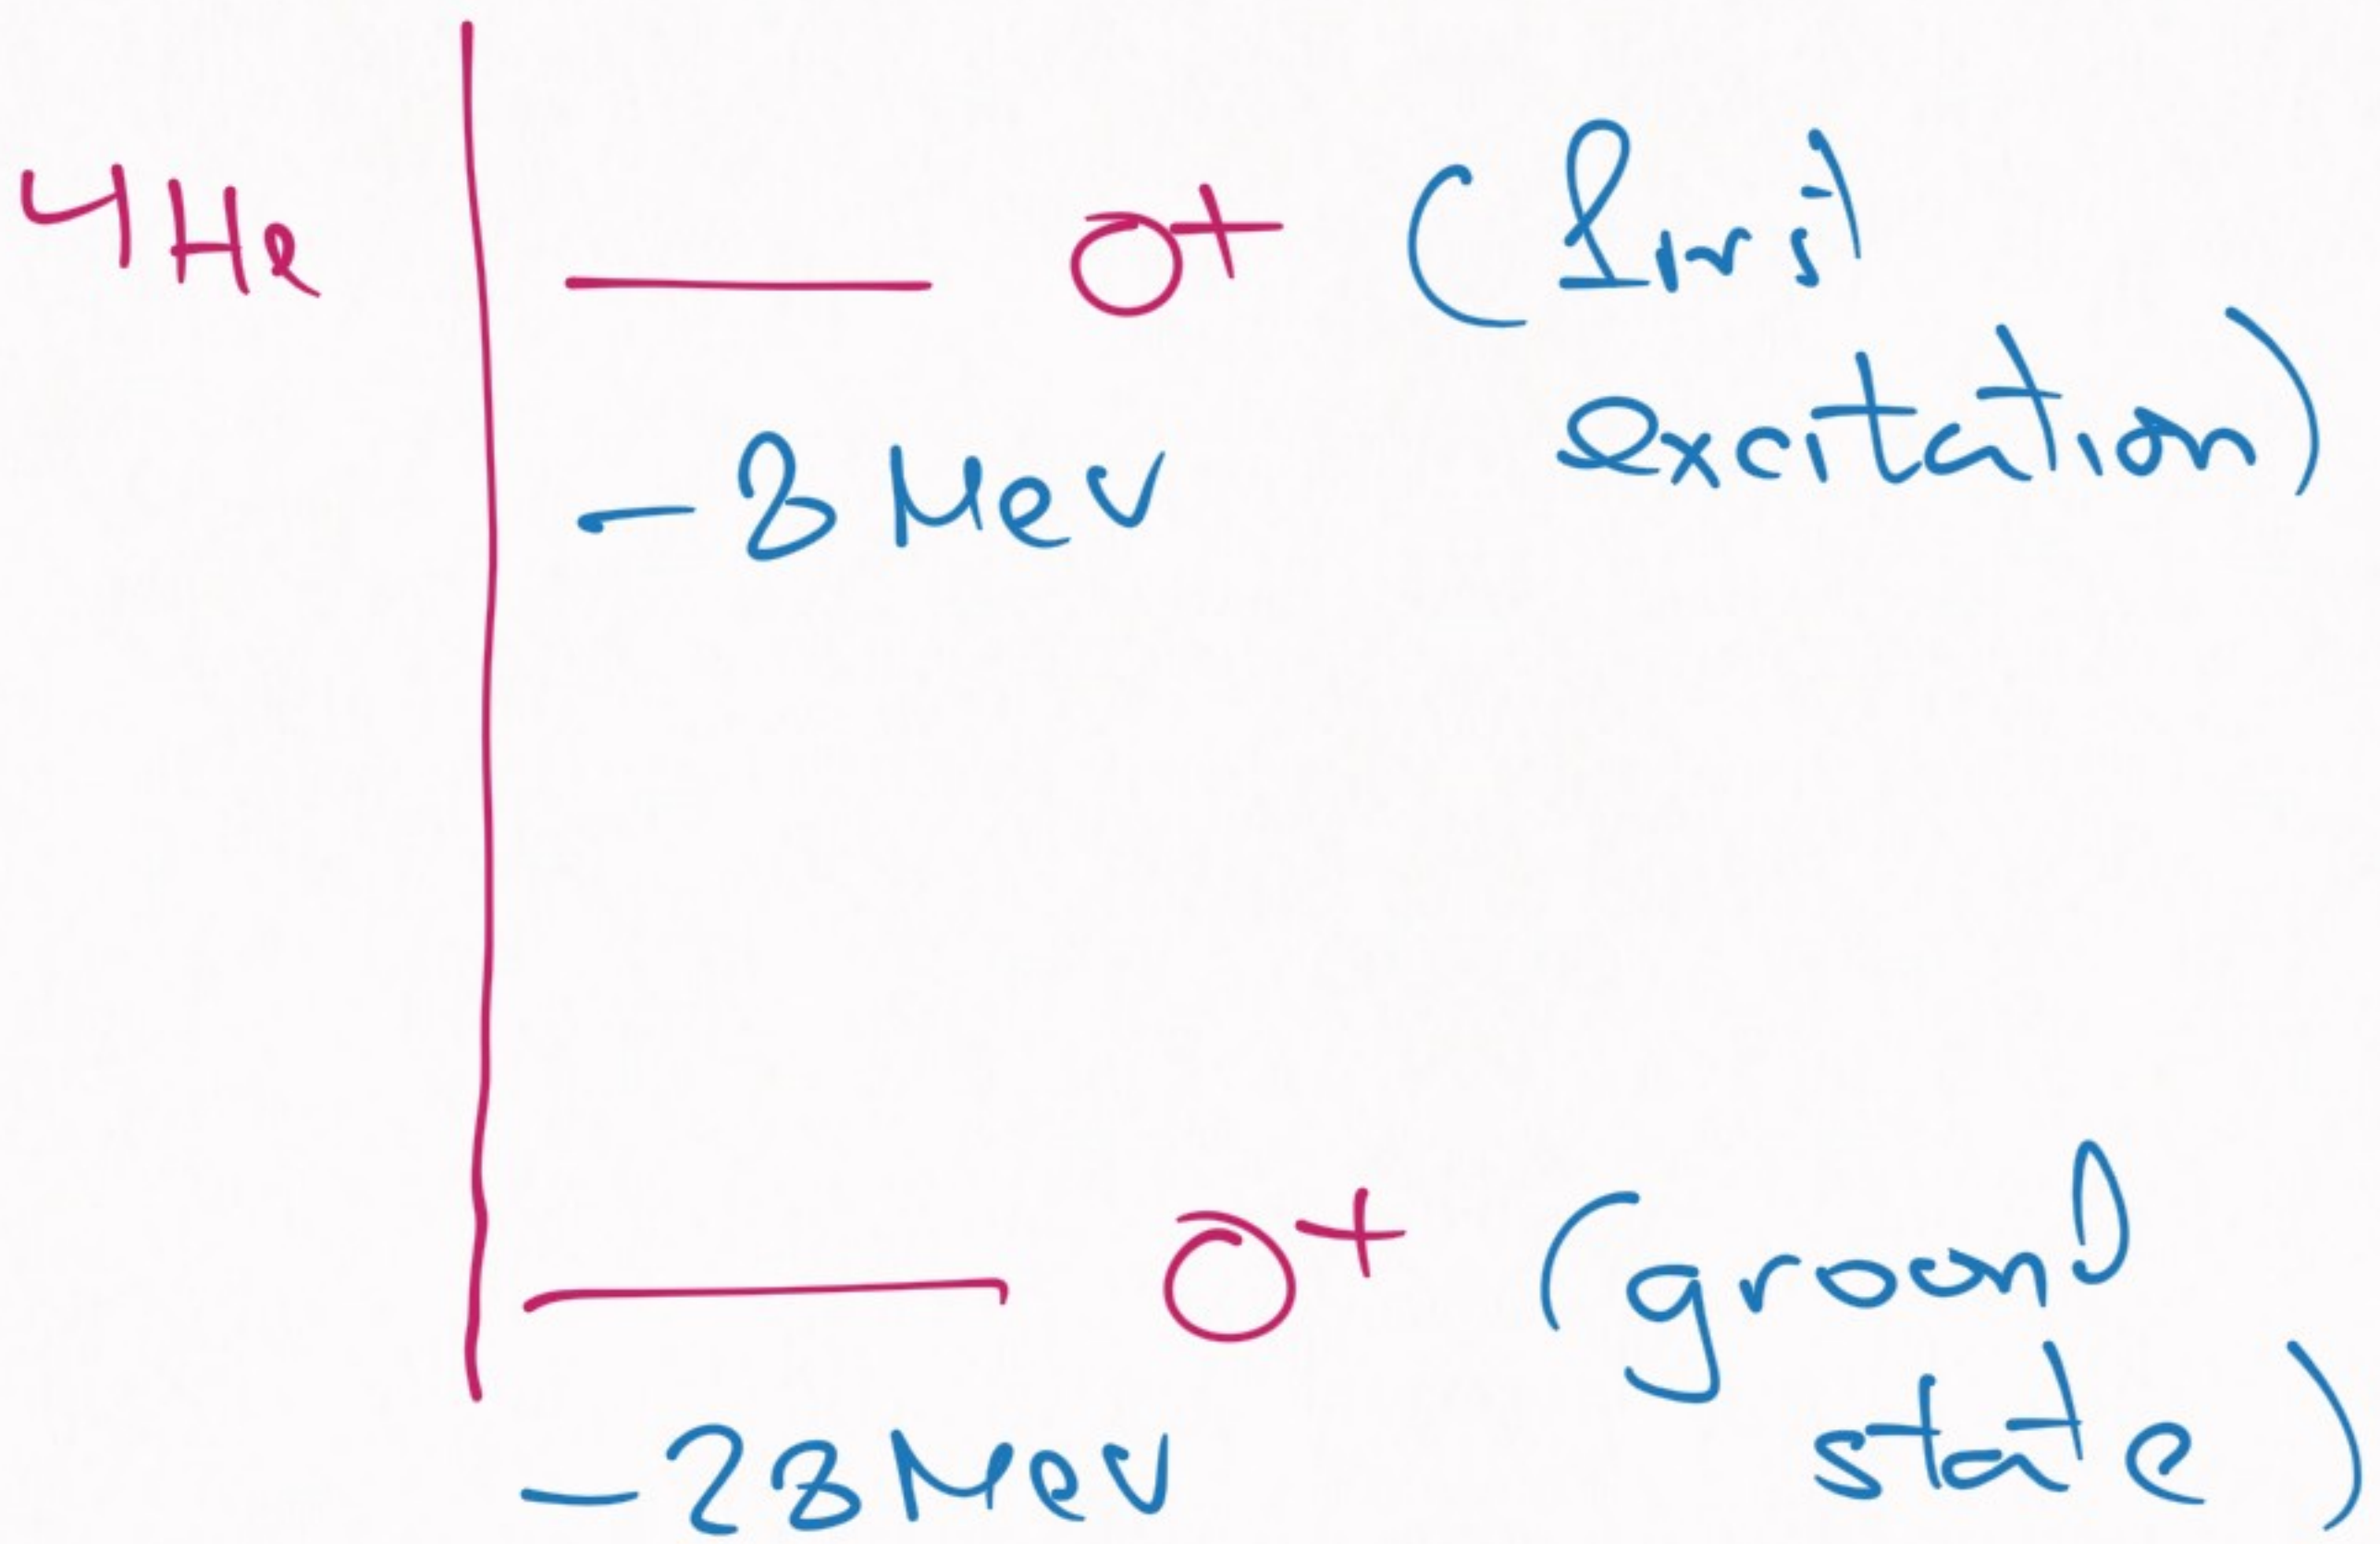 4He
0+ (first
excitation)
-8 MeV
0+ (ground
state)
-28 MeV